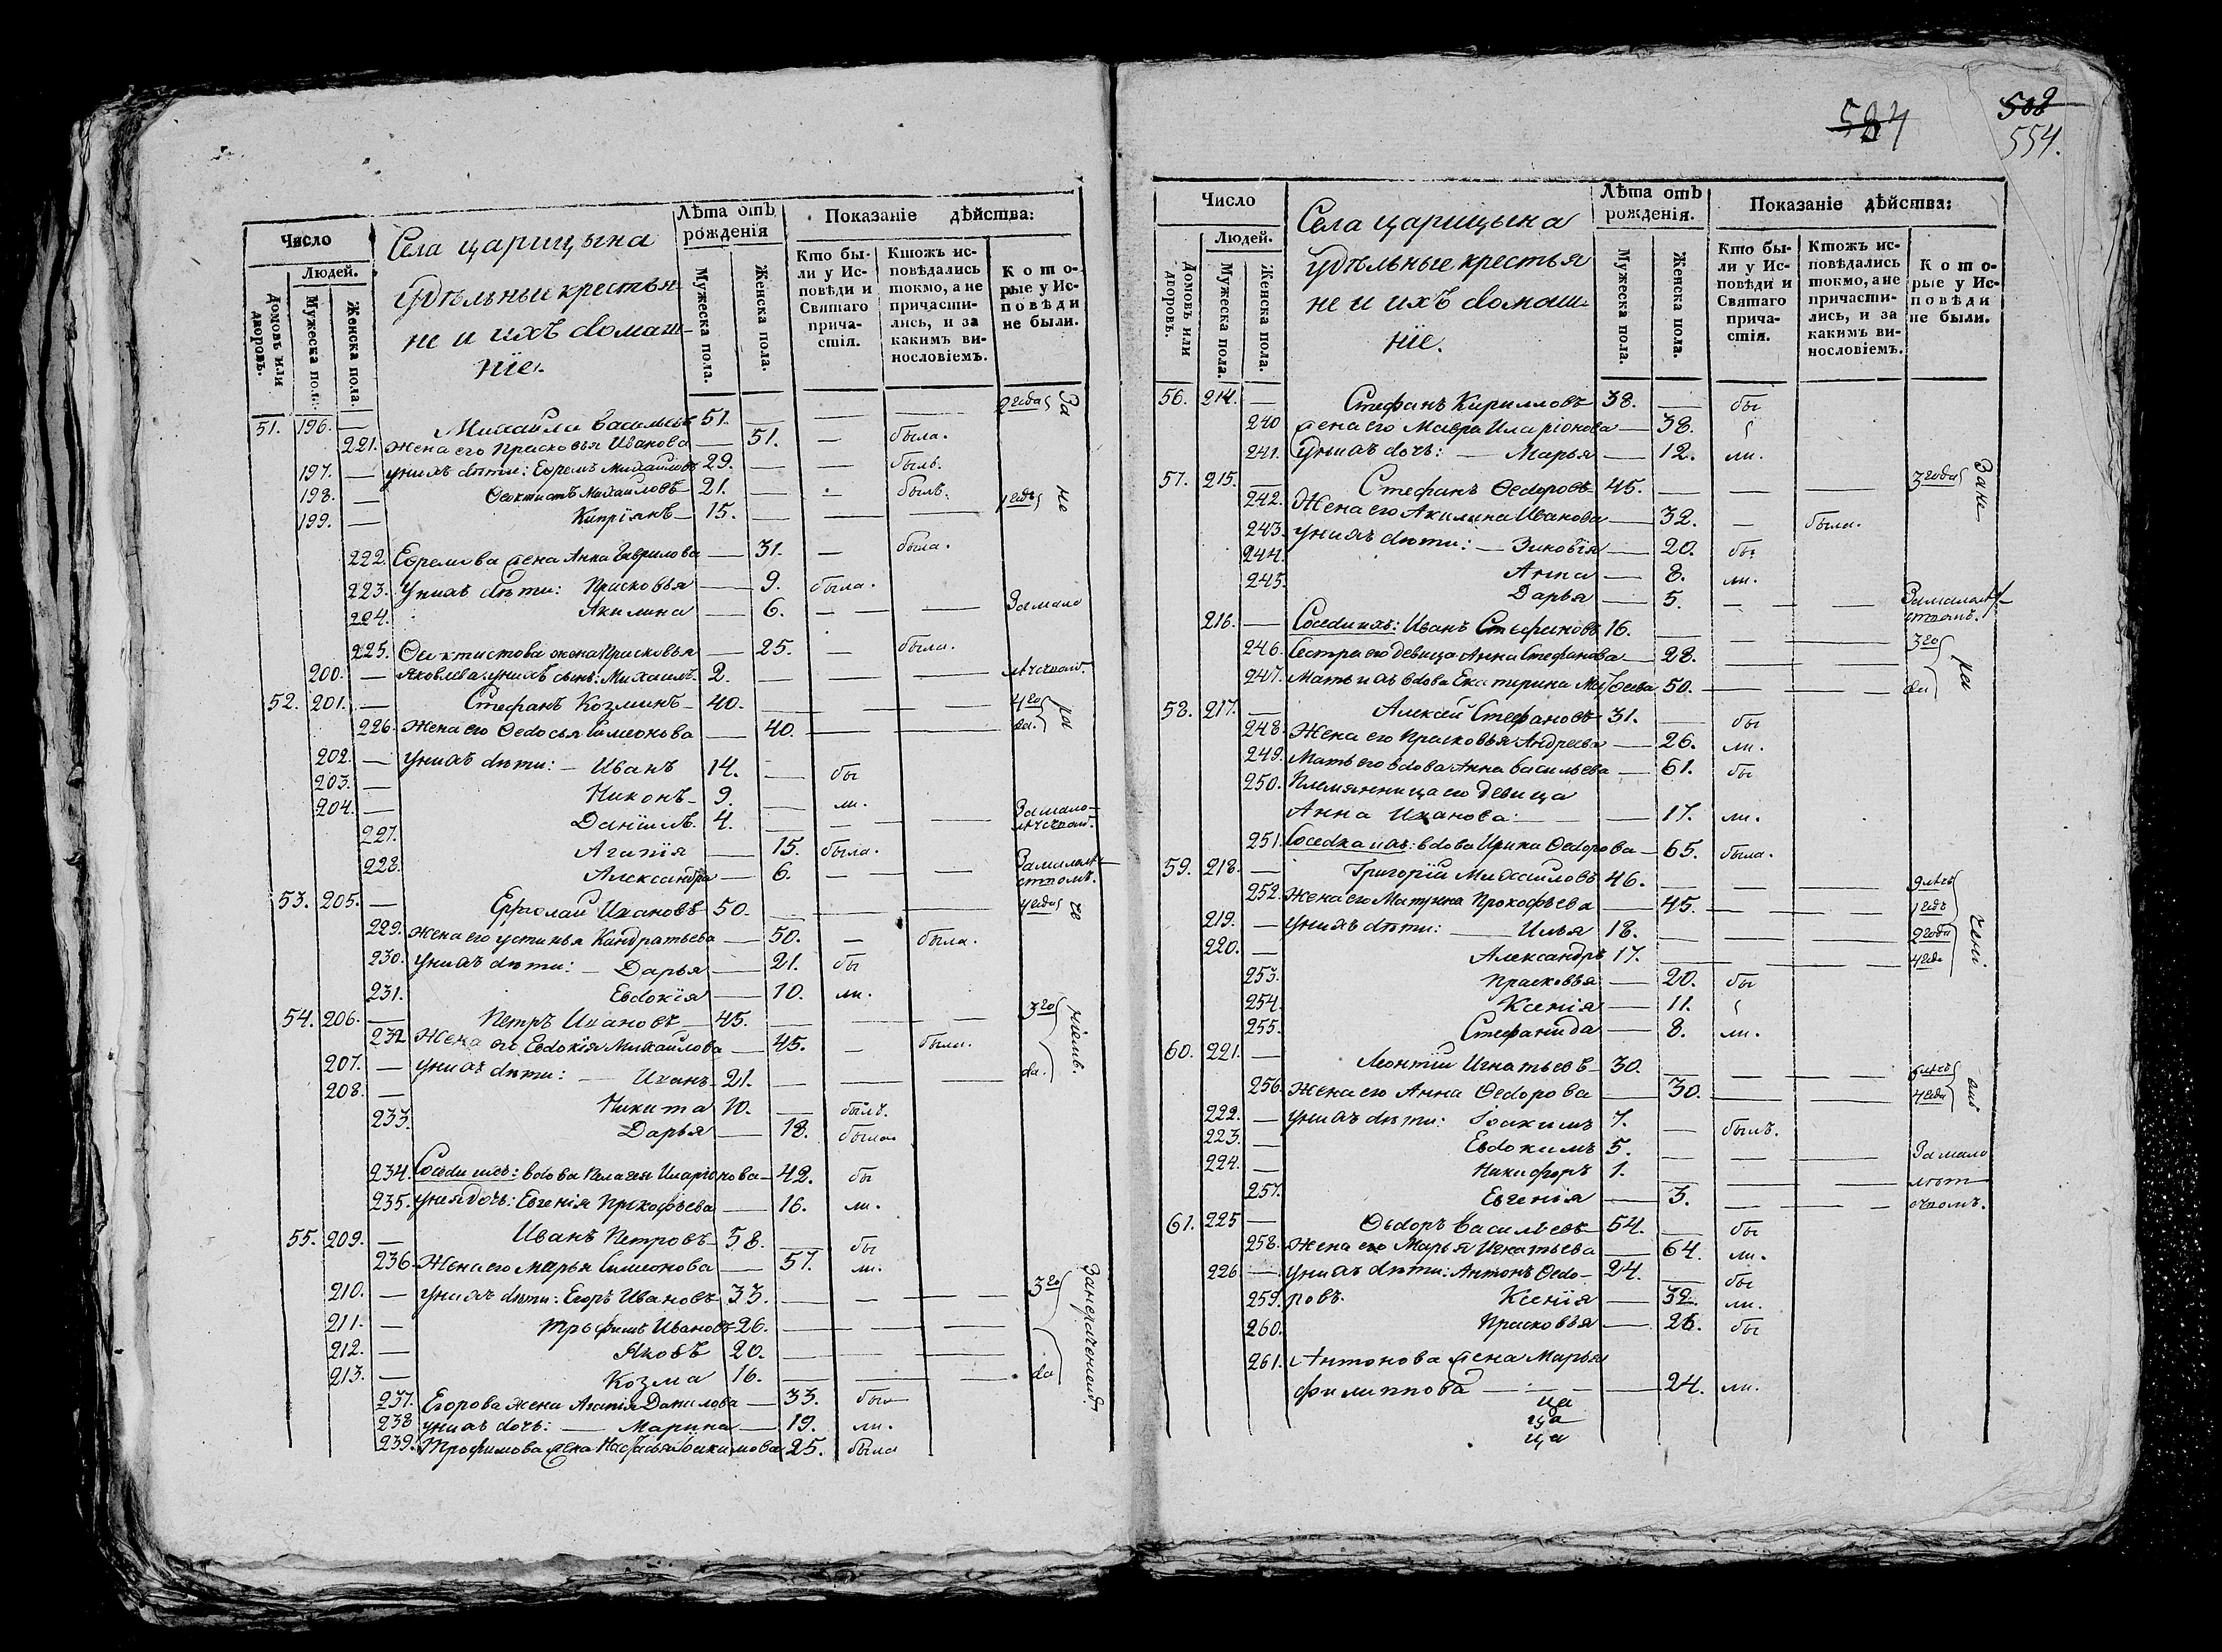 Число
Людей.
Домовъ или дворовъ.
Мужеска пола.
Женска пола.
Села царицына
Удѣльные крестья-
не и ихъ домаш-
нїе.
Лѣта отъ рожденія
Мужеска пола.
Женска пола.
Показаніе дѣйства:
Кто бы-
ли у Ис-
повѣди и
Святаго
прича-
стія.
Ктожъ ис-
повѣдались
токмо, а не
причасти-
лись, и за
какимъ ви-
нословіемъ.
Кото-
рые у Ис-
повѣди
не были.
51. 196. — Михайла Васильевъ 51. — — — 2 года За
221. Жена его Прасковья Иванова — 51. — была.
197. — у нихъ дѣти: Ефремъ Михайловъ 29. — — былъ.
198. — Ѳеоктистъ Михайловъ 21. — — былъ.
199. — Кипрїянъ 15. — — — 1 годъ не
222. Ефремова жена Анна Гаврилова — 31. — была.
223. У нихъ дѣти: Прасковья — 9. была.
224. Акилина — 6. — — За мало
225. Ѳеоктистова жена Прасковья — 25. — была.
200. — Яковлева. у нихъ сынъ: Михаилъ 2. — — — лѣтствомъ.
52. 201. — Стефанъ Козминъ 40. — — — 4 го ра
226. Жена его Ѳедосья Симеонова — 40. — — да.
202. — У нихъ дѣти: Иванъ 14. — бы
203. — Никонъ 9. — ли.
204. — Данїилъ 4. — — — За мало-
лѣтствомъ.
227. Агапїя — 15. была.
228. Александра — 6. — — За малолѣт-
ствомъ.
53. 205. — Ермолай Ивановъ 50. — — — 4 года че
229. Жена его Устинья Кандратьева — 50. — была.
230. У нихъ дѣти: Дарья — 21. бы
231. Евдокїя — 10. ли.
54. 206. — Петръ Ивановъ 45. — — — 3 го нїемъ.
232. Жена его Евдокїя Михайлова — 45. — была.
207. — У нихъ дѣти: Иванъ 21. — — — да.
208. — Никита 10. — былъ.
233. Дарья — 18. была.
234. Соседи ихъ: вдова Пелагея Иларїонова 42. бы
235. у нея дочь: Евгенїя Прокофьева — 16. ли.
55. 209. — Иванъ Петровъ 58. — бы
236. Жена его Марья Симеонова — 57. ли.
210. — у нихъ дѣти: Егоръ Ивановъ 33. — — — 3 го За нераченїемъ
211. — Трофимъ Ивановъ 26. — — —
212. — Яковъ 20. — — —
213. — Козма 16. — — — да
237. Егорова жена Агапїя Данилова — 33. бы
238. у нихъ дочь: Марина — 19. ли.
239. Трофимова жена Настасья Іоакимова 25. была
584
502
554.
Число
Людей.
Домовъ или дворовъ.
Мужеска пола.
Женска пола.
Села царицына
удѣльные крестья
не и ихъ домаш-
нїе.
Лѣта отъ рожденія.
Мужеска пола.
Женска пола.
Показаніе дѣйства:
Кто бы-
ли у Ис-
повѣди и
Святаго
прича-
стія.
Ктожъ ис-
повѣдались
токмо, а не
причасти-
лись, и за
какимъ ви-
нословіемъ.
Кото-
рые у Ис-
повѣди
не были.
56. 214. — Стефанъ Кирилловъ 38. — бы
240 жена его Мавра Иларїонова — 38.
241. У нихъ дочь: — Марья — 12. ли.
57. 215. — Стефанъ Ѳедоровъ 45. — — — 3 года За не
242. Жена его Акилина Иванова — 32. — была.
243. у нихъ дѣти: — Зиновїя — 20. бы
244. Анна — 8. ли.
245. Дарья — 5. — — — За малолѣт-
ствомъ.
216. — Соседи ихъ: Иванъ Стефановъ 16. — — — 3 го ра
246. Сестра его девица Анна Стефанова — 28. — — —
247. Мать ихъ вдова Екатерина Матѳеева 50. — — — да
58. 217. — Алексей Стефановъ 31. — бы
248. Жена его Прасковья Андреева — 26. ли.
249. Мать его вдова Анна Васильева — 61. бы
250. Племянница его девица
Анна Иванова — — 17. ли.
251. Соседка ихъ: вдова Ирина Ѳедорова — 65. была.
59. 218. — Григорїй Михайловъ 46. — — — 9 лѣтъ
252. Жена его Матрина Прокофьева — 45. — — — 1 годъ
219. — у нихъ дѣти: — Илья 18. — — — 2 года чені
220. — Александръ 17. — — — 4 года
253. Прасковья — 20. бы
254. Ксенїя — 11.
255. Стефанида — 8. ли.
60. 221. — Леонтїй Игнатьевъ 30. — — — 6 лѣтъ
256. Жена его Анна Ѳедорова — 30. — — — 4 года
222. — у нихъ дѣти: Іоакимъ 7. — былъ.
223. — Евдокимъ 5. — — — За мало
224. — Никифоръ 1. — — — лѣт
257. Евгенїя — 3. — — — ствомъ.
61. 225 — Ѳедоръ Васильевъ 54. — бы
258. Жена его Марья Игнатьева — 64. ли.
226 — У нихъ дѣти: Антонъ Ѳедо- 24. — бы
259. ровъ. Ксенїя — 32. ли.
260. Прасковья — 26. бы
261. Антонова жена Марья
Филиппова — — 24. ли.
ца
ца
ца